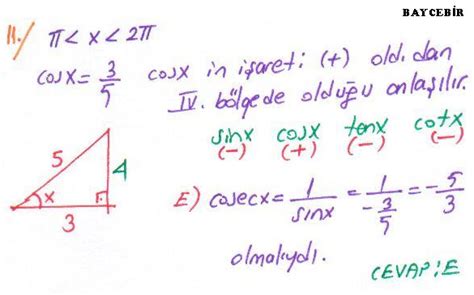 BAYCEBİR
11./ π < x < 2π
cosx = 3/5 cosx in işareti (+) old.dan
IV. bölgede olduğu anlaşılır.
sinx cosx tanx cotx
(-) (+) (-) (-)
5 4
x
3
E) cosecx = 1/sinx = 1/(-3/5) = -5/3
olmalıydı.
CEVAP:E